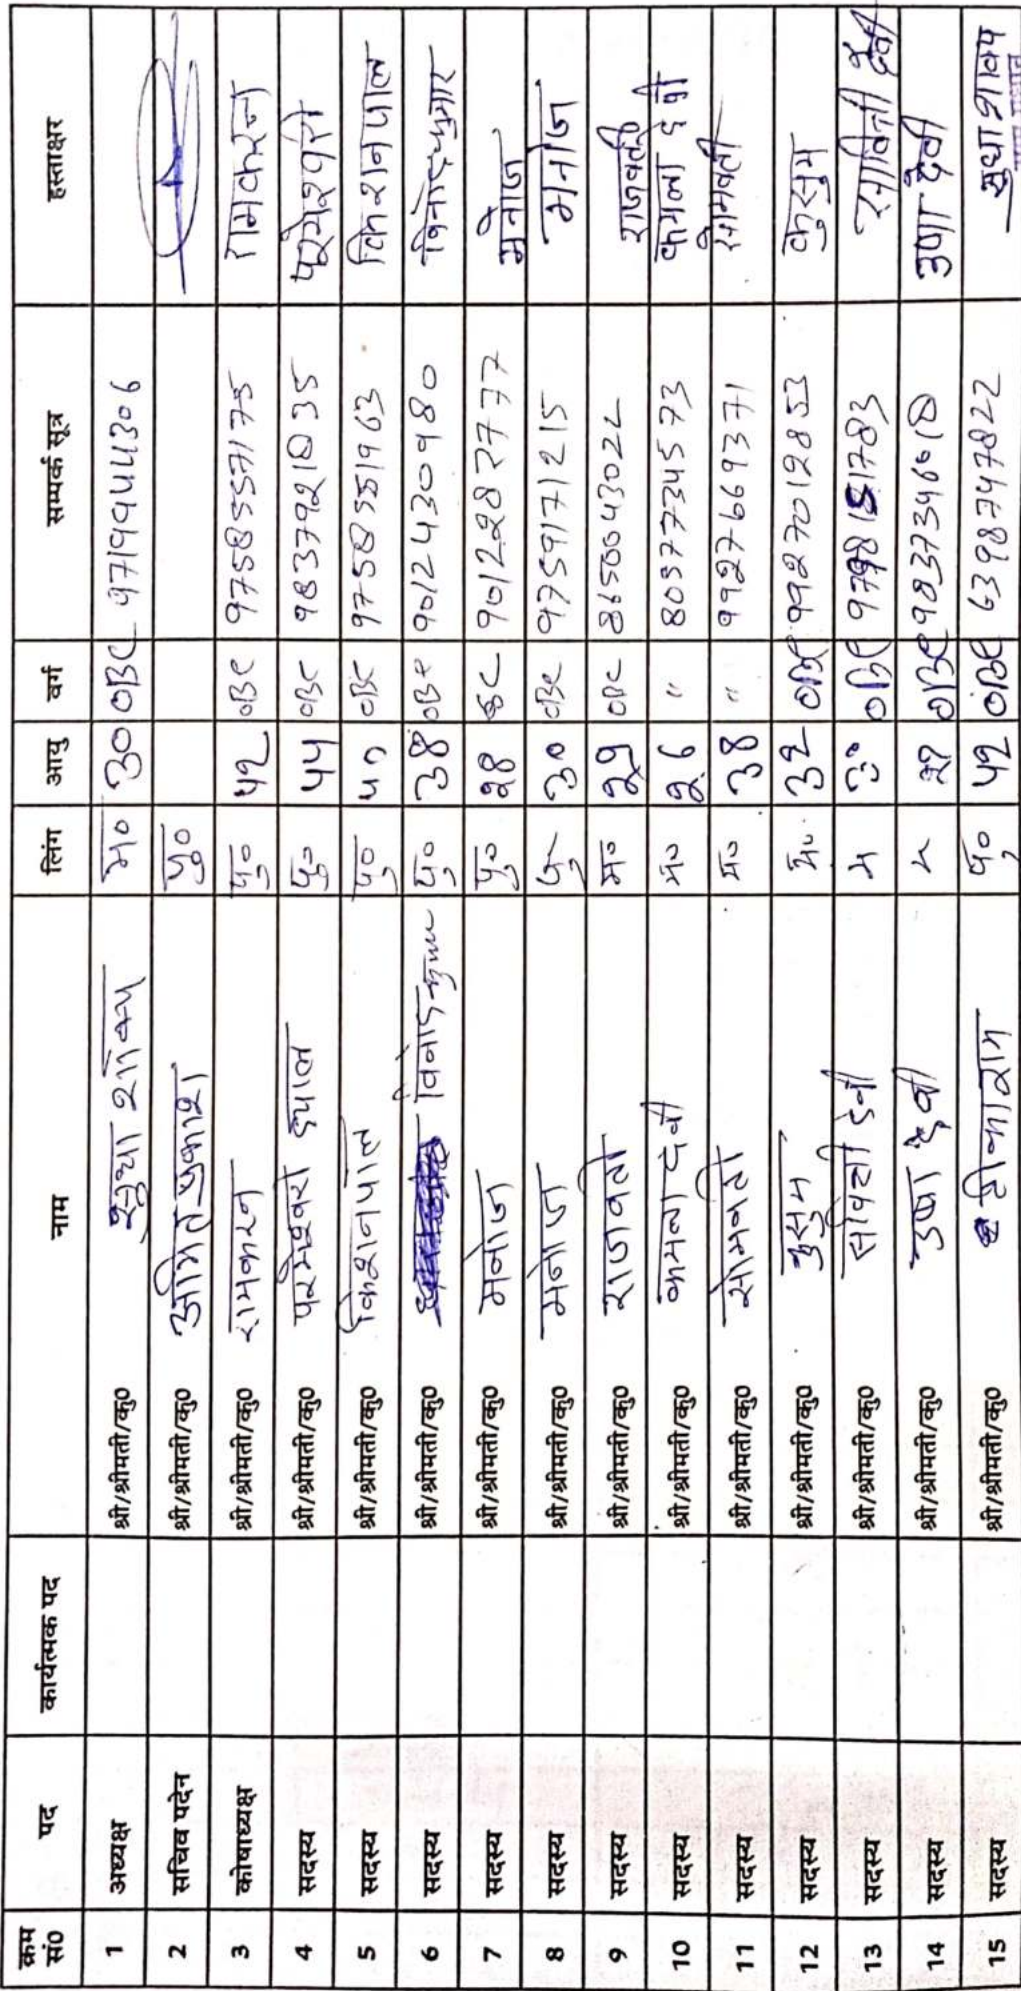 क्रम सं0 पद कार्यत्मक पद नाम लिंग आयु वर्ग सम्पर्क सूत्र हस्ताक्षर
1 अध्यक्ष श्री/श्रीमती/कु0 सुधा शाक्य म० 30 OBC 9719944306
2 सचिव पदेन श्री/श्रीमती/कु0 अमित प्रकाश पु०
3 कोषाध्यक्ष श्री/श्रीमती/कु0 रामकरन पु० 42 OBC 9758557175 रामकरन
4 सदस्य श्री/श्रीमती/कु0 परमेश्वरी दयाल पु० 44 OBC 9837921035 परमेश्वरी
5 सदस्य श्री/श्रीमती/कु0 किशनपाल पु० 40 OBC 9758551963 किशनपाल
6 सदस्य श्री/श्रीमती/कु0 विनोद कुमार पु० 38 OBC 9012430980 विनोद कुमार
7 सदस्य श्री/श्रीमती/कु0 मनोज पु० 28 SC 9012287777 मनोज
8 सदस्य श्री/श्रीमती/कु0 मनोज पु 30 OBC 9759171215 मनोज
9 सदस्य श्री/श्रीमती/कु0 राजवती म० 29 OBC 8650043022 राजवती
10 सदस्य श्री/श्रीमती/कु0 कमला देवी म० 26 " 8057734573 कमला देवी
11 सदस्य श्री/श्रीमती/कु0 सोमवती म० 38 " 9927669371 सोमवती
12 सदस्य श्री/श्रीमती/कु0 कुसुम म० 32 OBC 9927012853 कुसुम
13 सदस्य श्री/श्रीमती/कु0 सावित्री देवी म 30 OBC सावित्री देवी
14 सदस्य श्री/श्रीमती/कु0 उषा देवी म OBC 9837346010 उषा देवी
15 सदस्य श्री/श्रीमती/कु0 टीकाराम पु० 42 OBC 6398747822 सुधा शाक्य